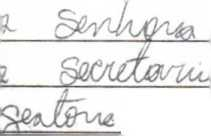 a senhora
a secretari
seatone